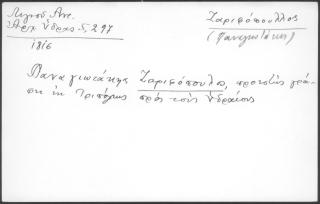 Λιγνοῦ Ἀντ.
Ἀρχ. Ὕδρας 5, 297
1816
Ζαριφόπουλλος
(Παναγιωτάκης)
Παναγιωτάκης Ζαριφόπουλος, προεστὼς γρά-
φει ἐκ Τριπόλεως πρὸς τοὺς Ὑδραίους